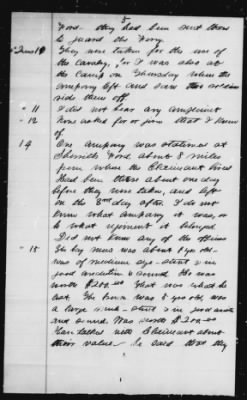 5
Ford. they had been sent there
to guard the Ferry.
They were taken for the use of
the Cavalry, for I was also at
the Camp on Thursday when the
company left and saw the soldiers
ride them off.
11 I did not hear any complaint
12 None asked for or given that I know
of
14 One company was stationed at
Sherrills Ford about 8 miles
from where the Claimant lives
Had been there about one day
before they were taken, and left
on the 3rd day after. I do not
know what company it was, or
to what regiment it belonged
Did not know any of the officers
15 The bay mare was about 8 yrs old.
was of medium size - stout & in
good condition & sound. She was
worth $200.00 That was what he
cost. The horse was 8 yrs old, was
a large size - stout & in good condition
and sound. Was worth $200.00
Have talked with Claimant about
their value - he said that they